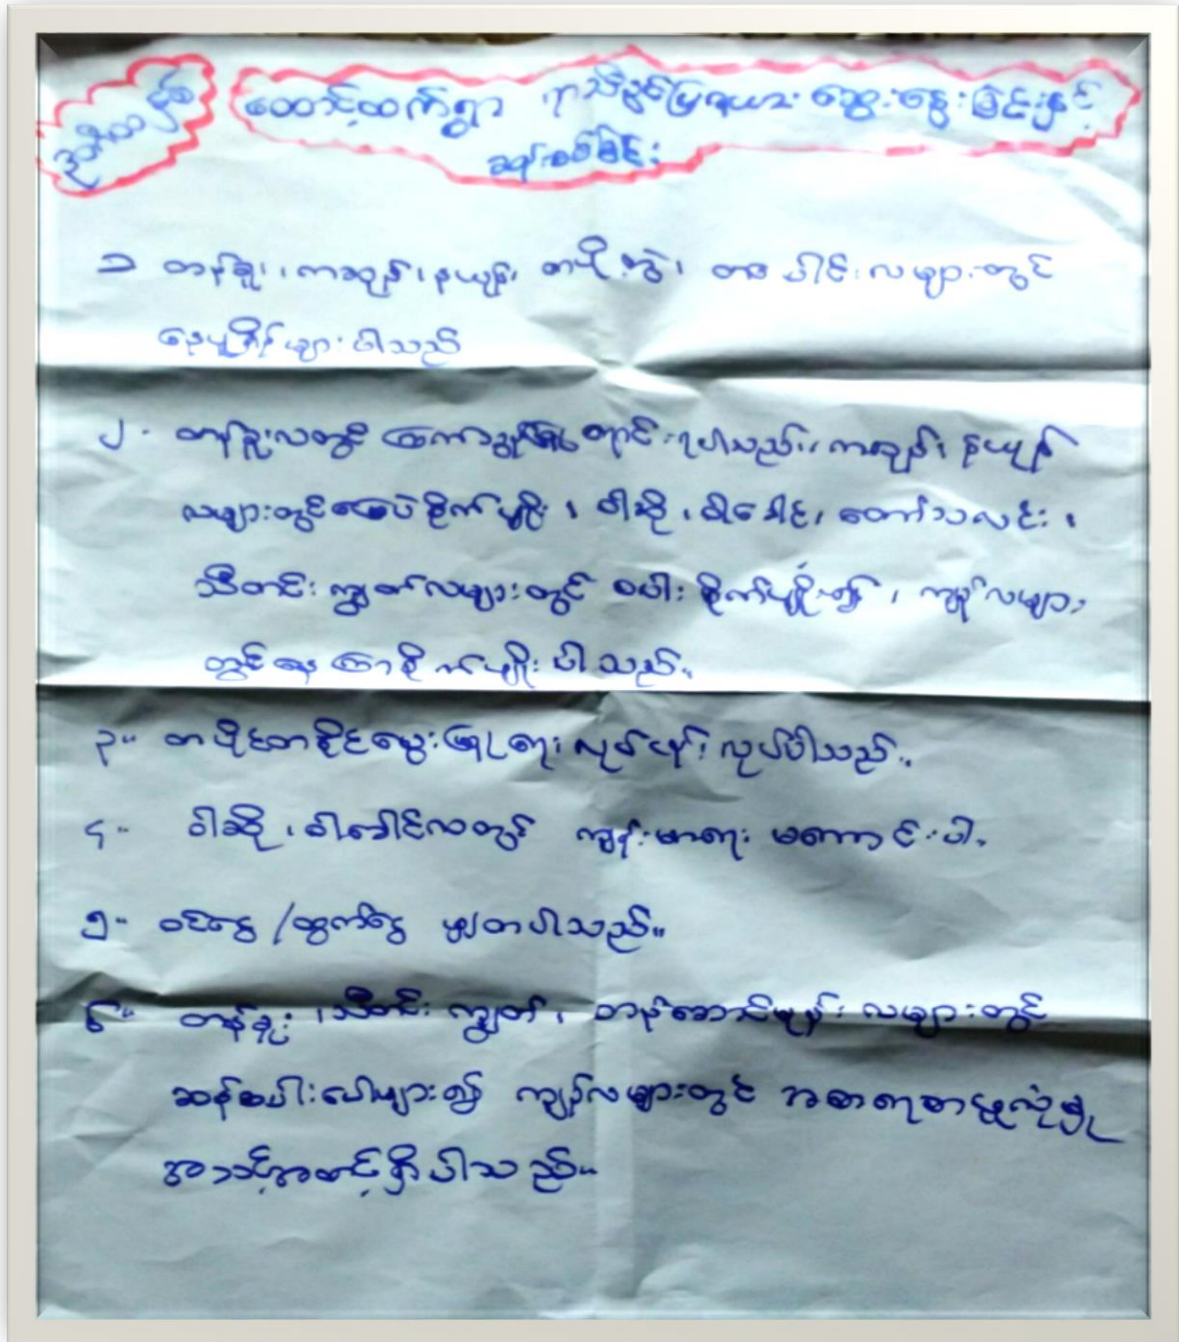 ဒုတိယနှစ်
ထောင့်ထက်ရွာ ရာသီခွင်ပြဇယား ဆွေးနွေးခြင်းနှင့်
ဆန်းစစ်ခြင်း
၁ တန်ခူး၊ ကဆုန်၊ နယုန်၊ တပို့တွဲ၊ တပေါင်းလများတွင်
နေပူချိန်များပါသည်
၂. တန်ခူးလတွင် တောင်းရပါသည်။ ကဆုန်၊ နယုန်
လများတွင်မြေပဲစိုက်ပျိုး၊ ဝါဆို၊ ဝါခေါင်၊ တော်သလင်း၊
သီတင်းကျွတ်လများတွင် စပါးစိုက်ပျိုး၍၊ ကျန်လများ
တွင်နေကြာစိုက်ပျိုးပါသည်။
၃။ တပိုင်တနိုင်မွေးမြူရေးလုပ်ငန်းလုပ်ပါသည်။
၄။ ဝါဆို၊ ဝါခေါင်လတွင် ကျန်းမာရေး မကောင်းပါ။
၅။ ဝင်ငွေ/ထွက်ငွေ မျှတပါသည်။
၆။ တန်ခူး၊ သီတင်းကျွတ်၊ တန်ဆောင်မုန်းလများတွင်
ဆန်စပါးပေါများ၍ ကျန်လများတွင် အစာရေစာဖူလုံမှု
အသင့်အတင့်ရှိပါသည်။